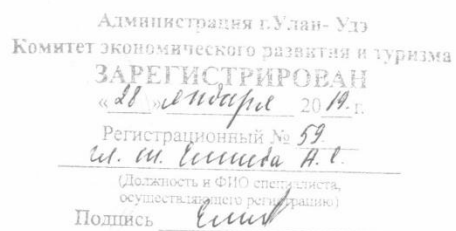 Администрация г.Улан- Удэ
Комитет экономического развития и туризма
ЗАРЕГИСТРИРОВАН
« 28 » января 2019 г.
Регистрационный № 59
А. С.
(Должность и ФИО специалиста,
осуществляющего регистрацию)
Подпись